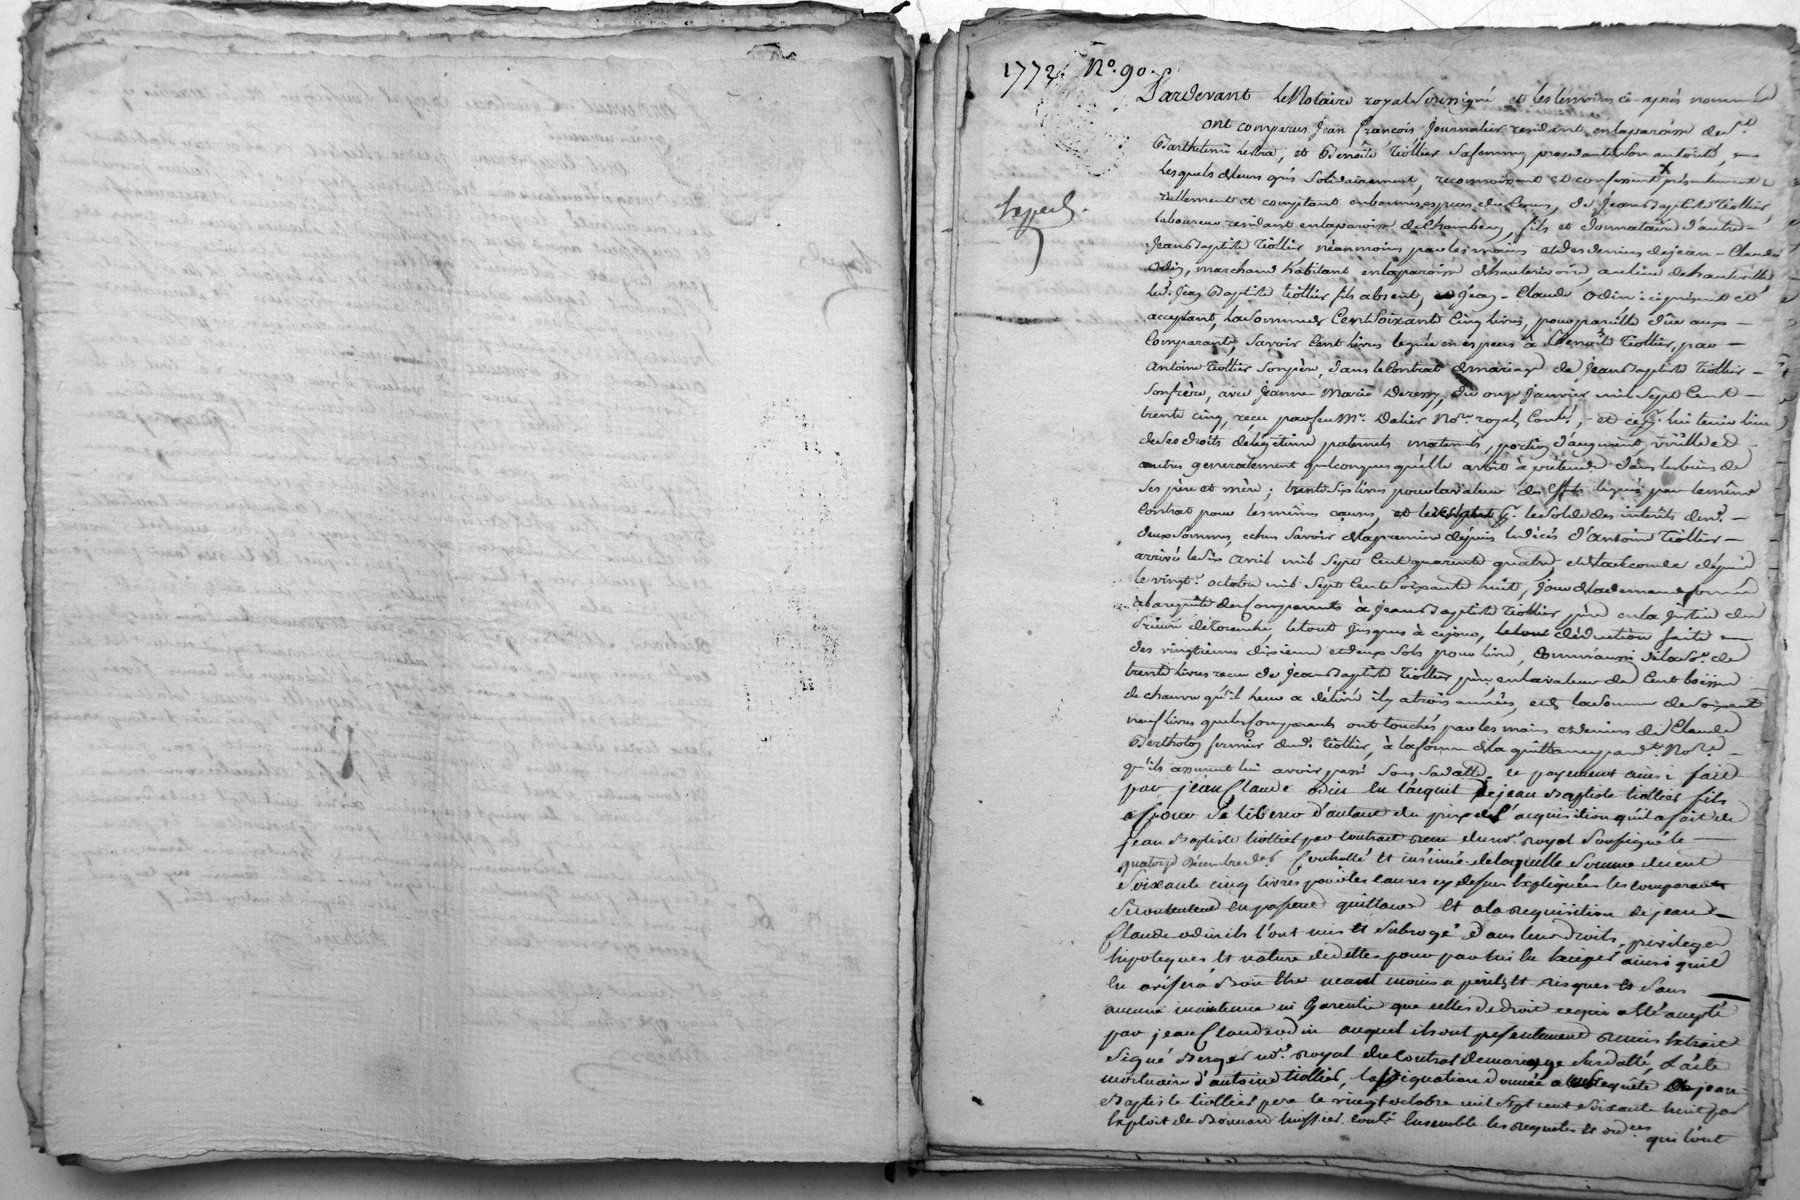 1772. No. 90.
Pardevant le Notaire royal soussigné et les temoins ci-après nommés
ont comparus Jean François Journalier resident en la paroisse de St.
Barthelemi Lestra, et Benoîte Tiollier sa femme, procedante de son autorité,
lesquels de leurs grés solidairement, reconnoissent et confessent présentement
réellement et comptant en bonnes espèces du cours, de Jean Baptiste Tiollier,
laboureur residant en la paroisse de Chambeon, fils et donnataire d'autre
Jean Baptiste Tiollier néanmoins par les mains et des deniers de Jean-Claude
Odin, marchand habitant en la paroisse d'hauterivoire, au lieu de hauteville
led. Jean Baptiste Tiollier fils absent, Jean-Claude Odin ici présent et
acceptant, la somme de Cent Soixante Cinq livres, pour pareille dûe aux
Comparants, Savoir Cent livres leguée en especes à Benoîte Tiollier, par
Antoine Tiollier son père, dans le Contrat de mariage de Jean Baptiste Tiollier
son frère, avec Jeanne Marie Deressy, du onze Janvier mil sept Cent
trente cinq, reçu par feu Me. Dalier Nore. royal, Conlé, et ce pr. lui tenir lieu
de ses droits de légitime paternels maternels, portion d'augment, virille et
autres generalement quelconques qu'elle avoit à prétendre dans les biens de
ses père et mère; trente six livres pour la valeur des effets legués par le même
Contrat pour les mêmes causes, le solde des intérêts desd.
deux sommes, echus savoir de la premiere depuis le décès d'Antoine Tiollier
arrivé le six avril mil sept Cent quarente quatre, et de la seconde depuis
le vingt octobre mil sept Cent Soixante huit, jour de la demande formée
à la requête des Comparants à Jean Baptiste Tiollier père en la Justice du
Prieuré de Toranche, le tout jusques à ce jour, déduction faite
des vingtiemes dixieme et deux sols pour livre, comm'aussi de la so. de
trente livres reçue de Jean Baptiste Tiollier père, en la valeur de Cent
de chanvre qu'il leur a délivré il y a trois années, et de la somme de soixante
neuf livres que les Comparants ont touchés par les mains et deniers de Claude
Bertholon fermier dud. Tiollier, à la forme de la quittance pard. Nore.
qu'ils assurent lui avoir passé sous sa datte, le payement ainsi fait
par jean Claude odin en l'acquit de jean Baptiste tiollier fils
a pour se liberer d'autant du prix de l'acquisition qu'il a fait de
jean Baptiste tiollier par contract reçu dud. nore. royal soussigné le
quatorze décembre der. Controllé et insinué de laquelle somme de cent
soixante cinq livres pour les causes cy dessus expliquées les comparants
se contentent en passent quittance et a la requisition de jean
Claude odin ils l'ont mis et subrogé dans leurs droits, privileges
hipoteques et nature de dette pour par lui en exiger ainsi qu'il
en avisera bon être neant moins a perils et risques et sans
aucune maintenue ni garentie que celles de droit ce qui a été accepté
par jean Claude odin auquel ils ont presentement remis Extrait
signé Berger nore. royal du Contrat de mariage sus datté, l'acte
mortuaire d'antoine tiollier, l'assignation donnée a leur requête a jean
Baptiste tiollier pere le vingt octobre mil sept cent soixante huit par
Exploit de huissier conlé Ensemble les requetes et ordces
qui l'ont